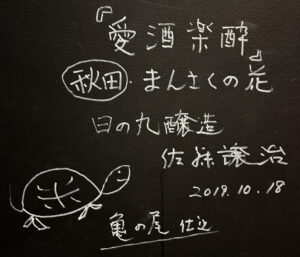 『愛酒楽酔』
秋田・まんさくの花
日の丸醸造
佐藤譲治
2019.10.18
米
亀の尾 仕込